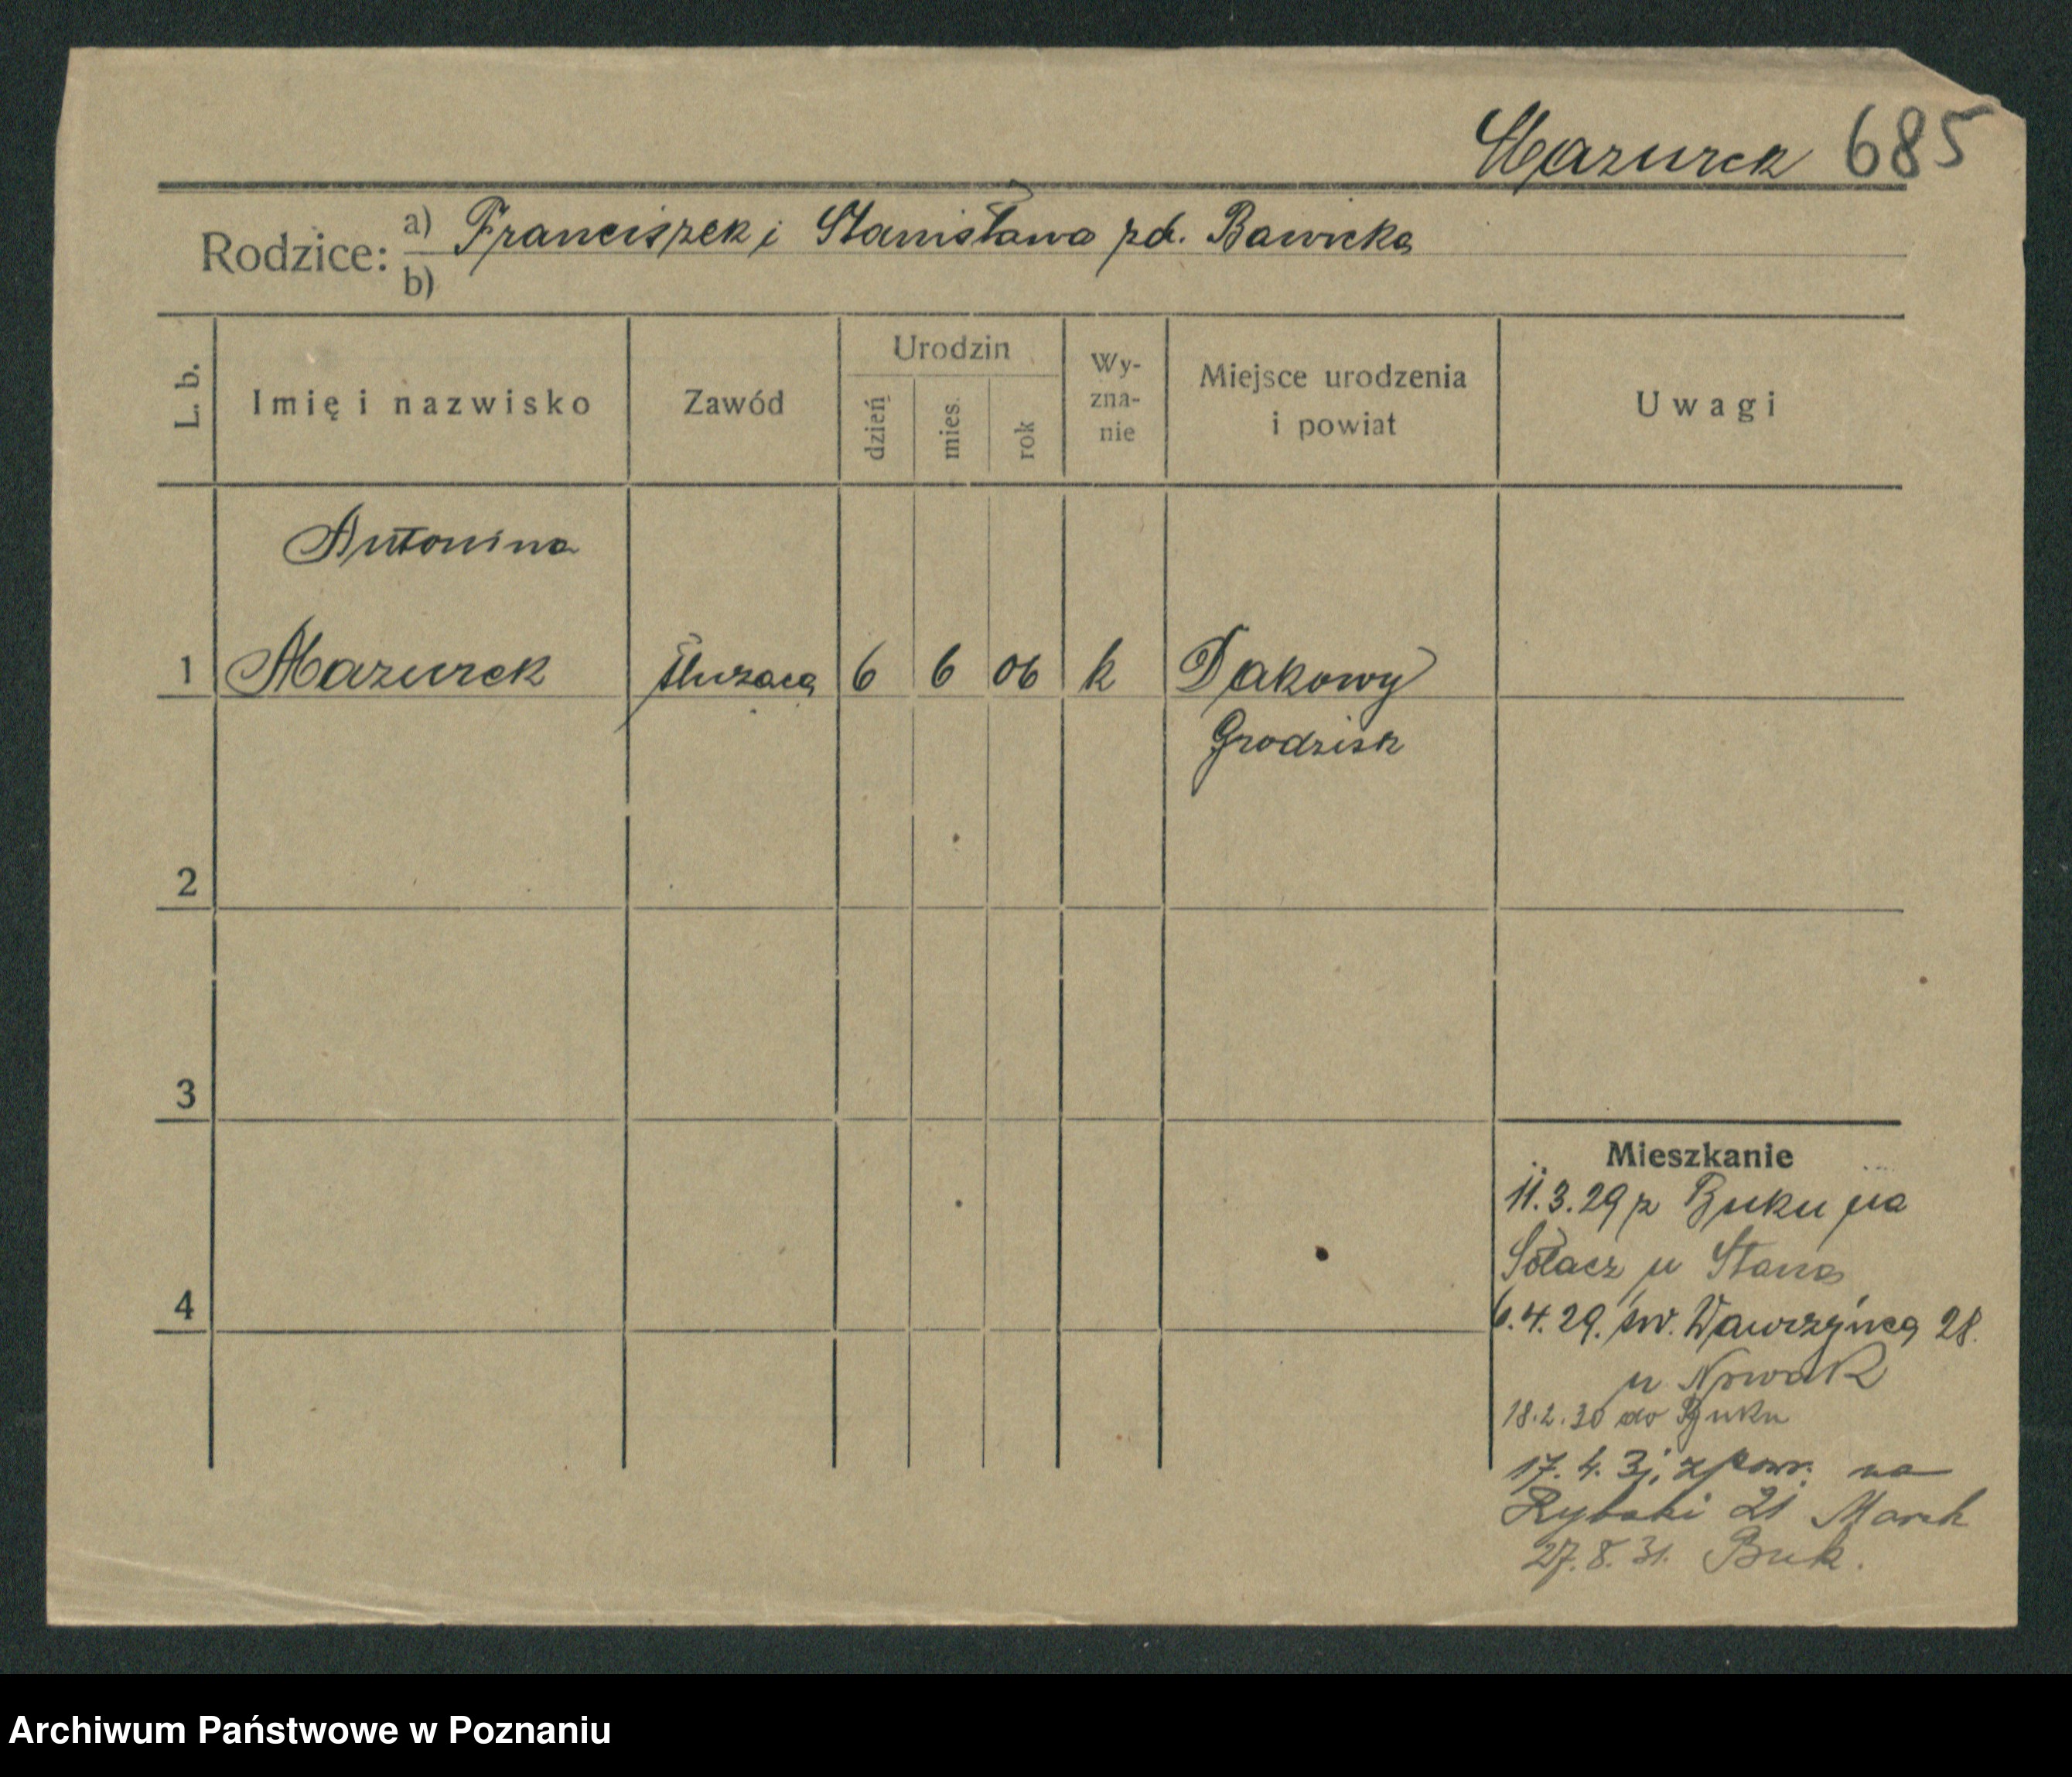 Mazurek 685
Rodzice: a) Franciszek i Stanisława zd. Bawicka
b)
L. b. Imię i nazwisko Zawód Urodzin dzień mies. rok Wy-zna-nie Miejsce urodzenia i powiat Uwagi
Antonina
1 Mazurek służąca 6 6 06 k Dakowy
Grodzisk
2
3
4
Mieszkanie
11.3.29 z Buku na
Sołacz u Stana
6.4.29. św. Wawrzyńca 28.
u Nowak
18.2.30 do Buku
17.4.31. z pow. na
Rybaki 21
27.8.31. Buk.
Archiwum Państwowe w Poznaniu